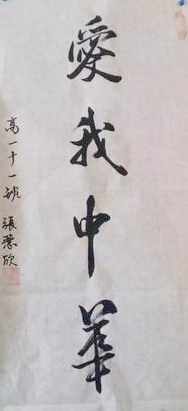 愛我中華
高一十一班 張慧欣